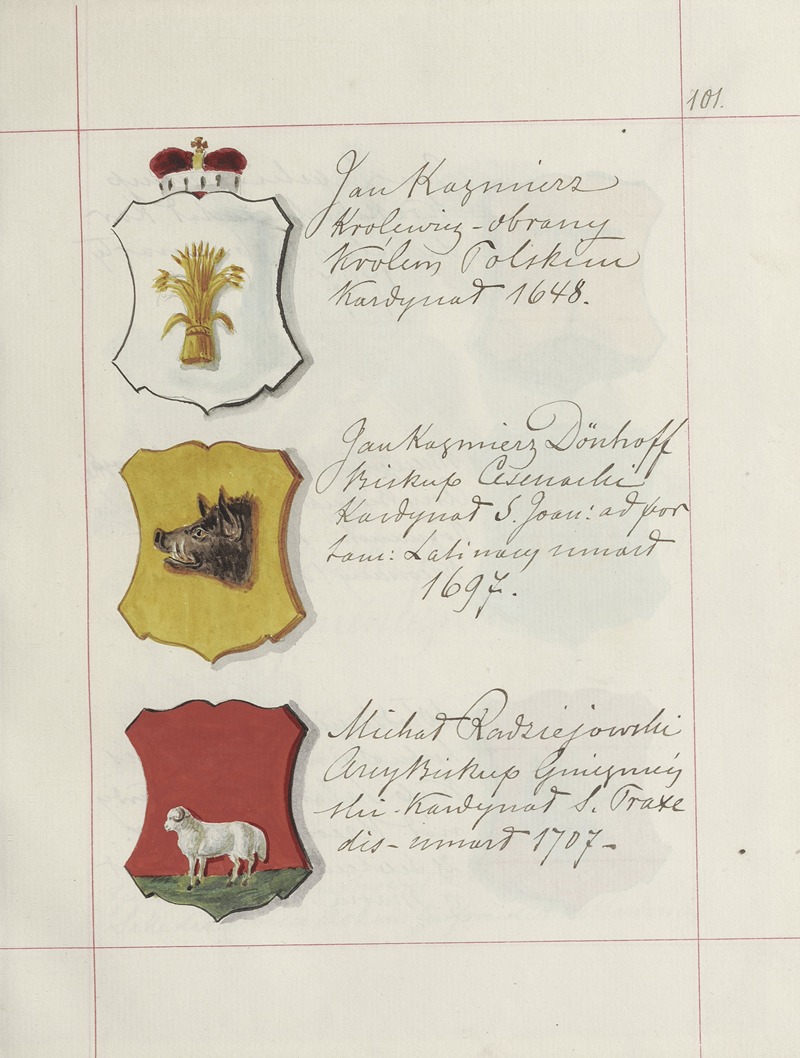 101.
Jan Kazmierz
Krolewicz - obrany
Królem Polskim
Kardynał 1648.
Jan Kazmierz Dönhoff
Biskup Cesenacki
Kardynał S. Joan: ad por
tam: Latinam umarł
1697.
Michał Radziejowski
Arcy Biskup Gnieznień
ski - Kardynał S. Praxe
dis - umarł 1707 -